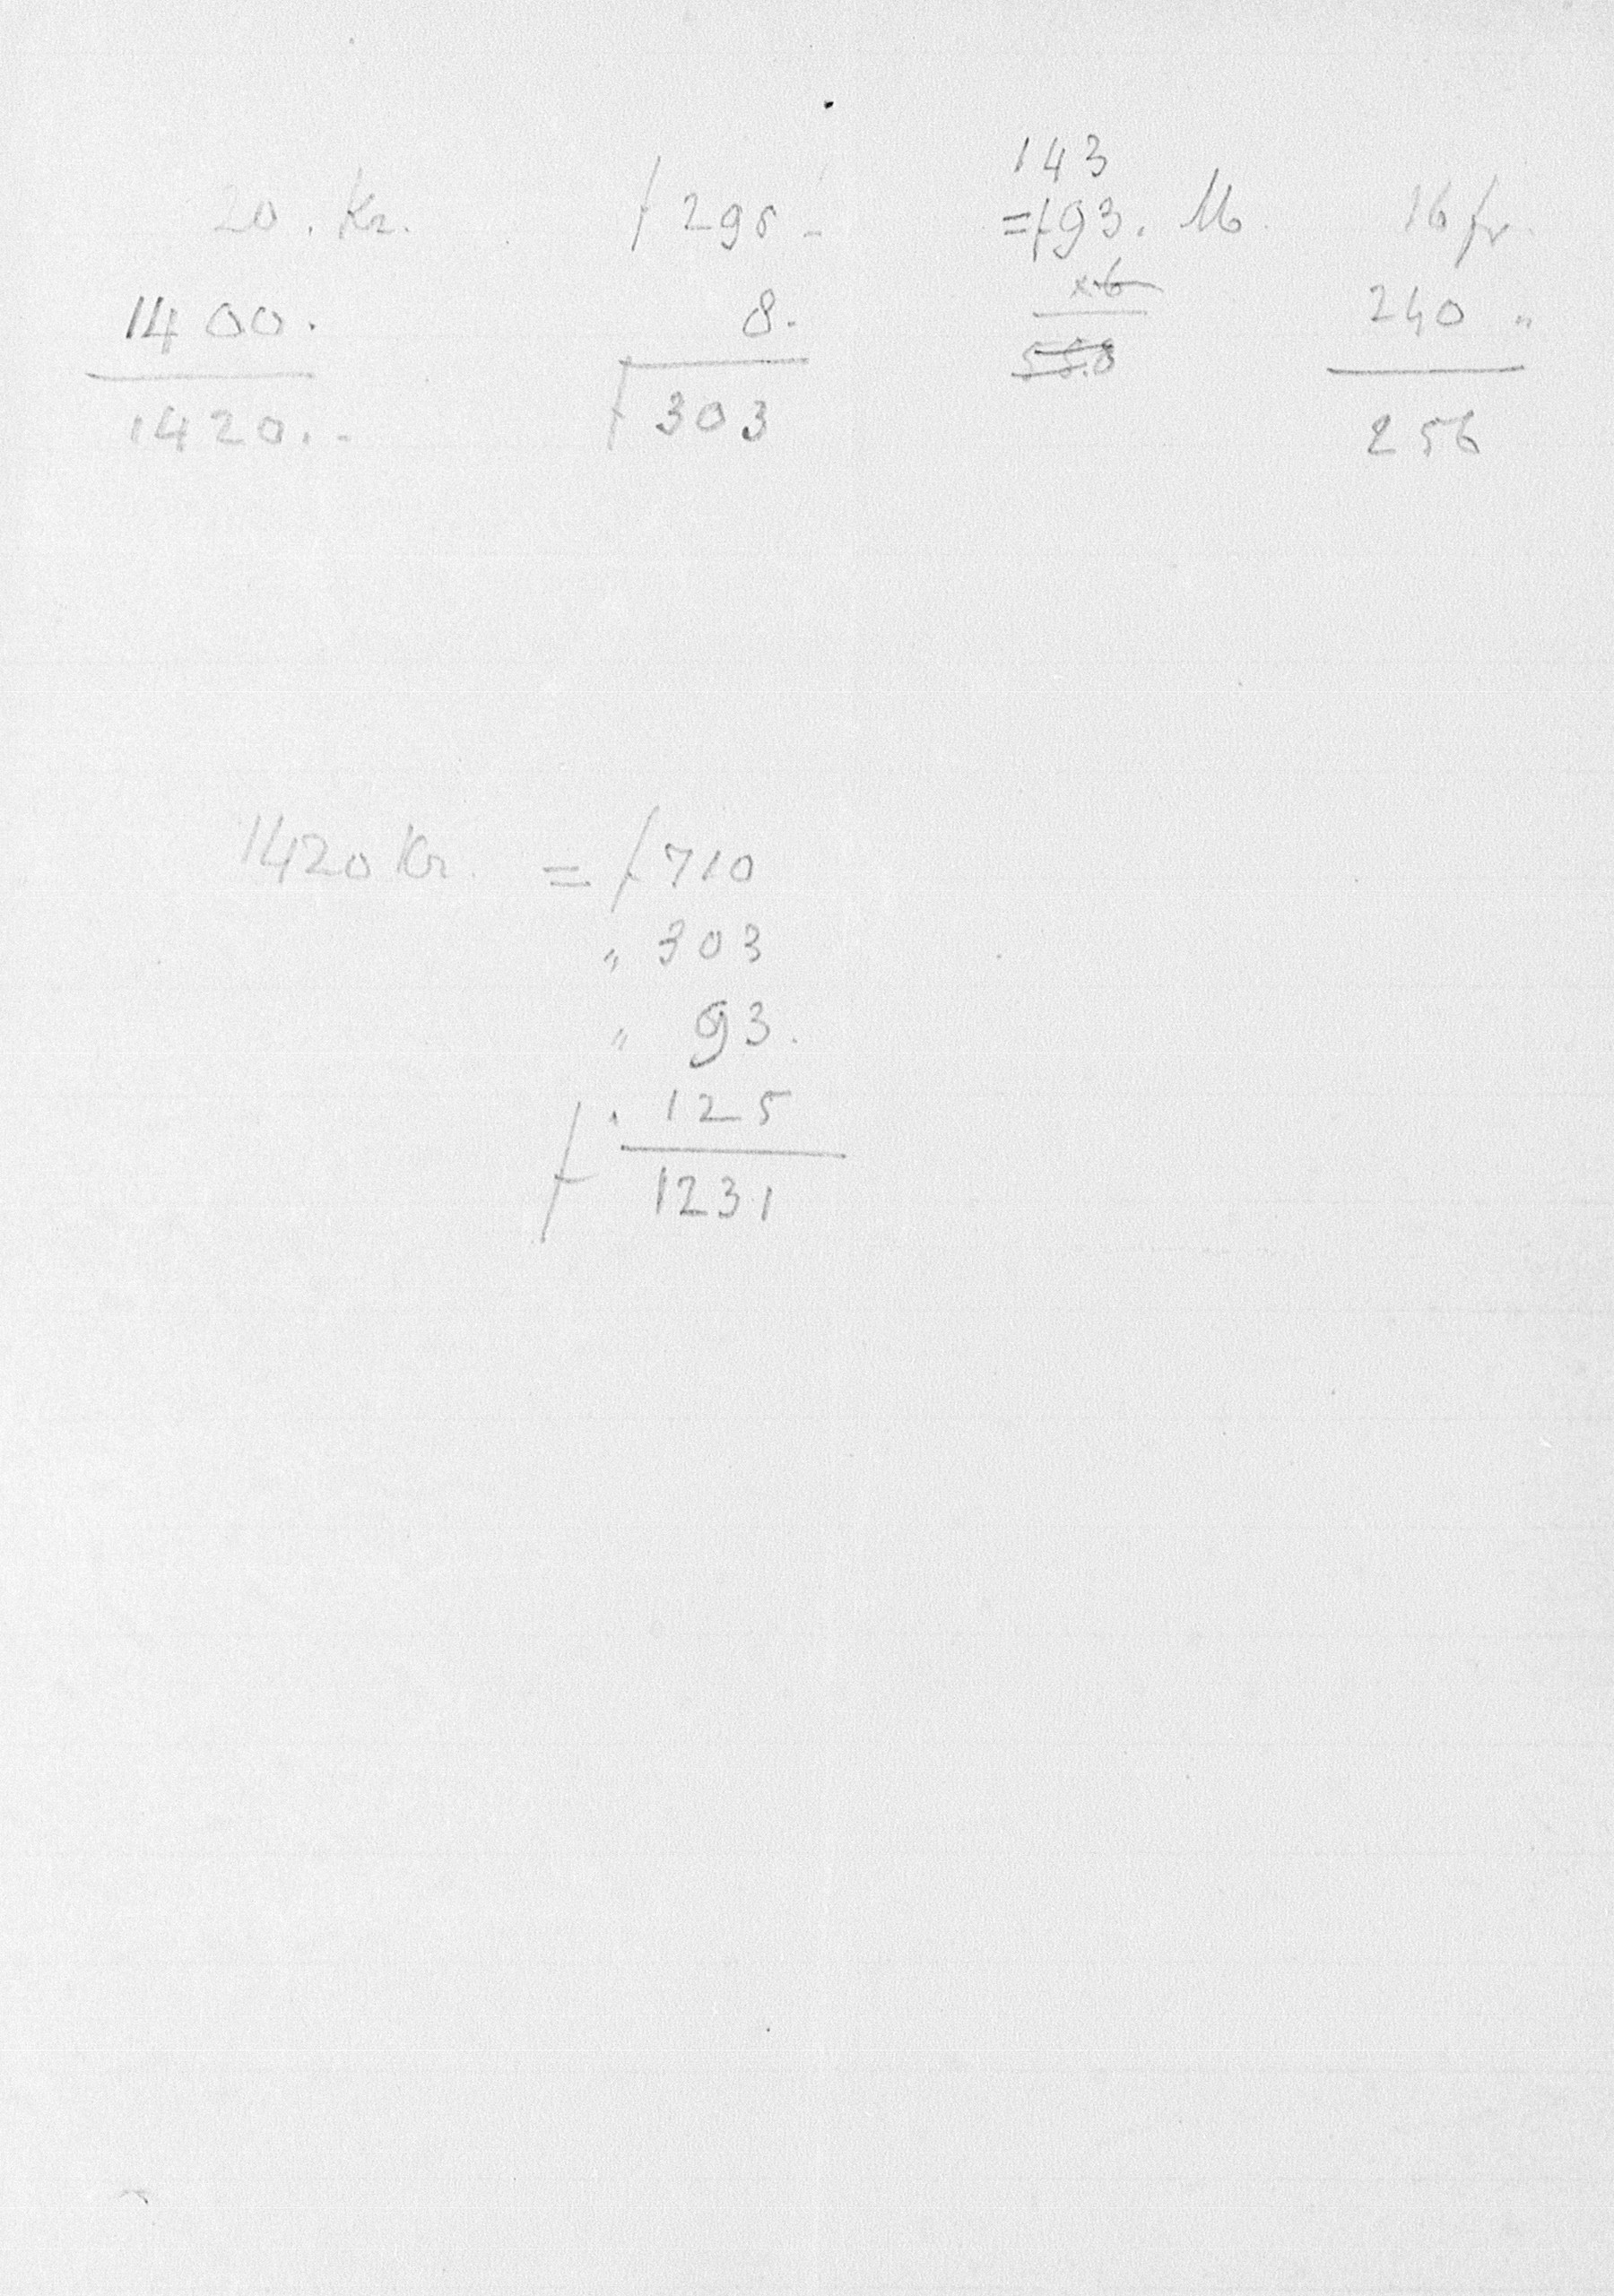 143
20. Kr. ƒ 295 - = ƒ 93. M 16 fr.
1400. 8. × 6 240 "
1420. - ƒ 303 558 256
1420 Kr. = ƒ 710
" 303
" 93.
" 125
ƒ 1231